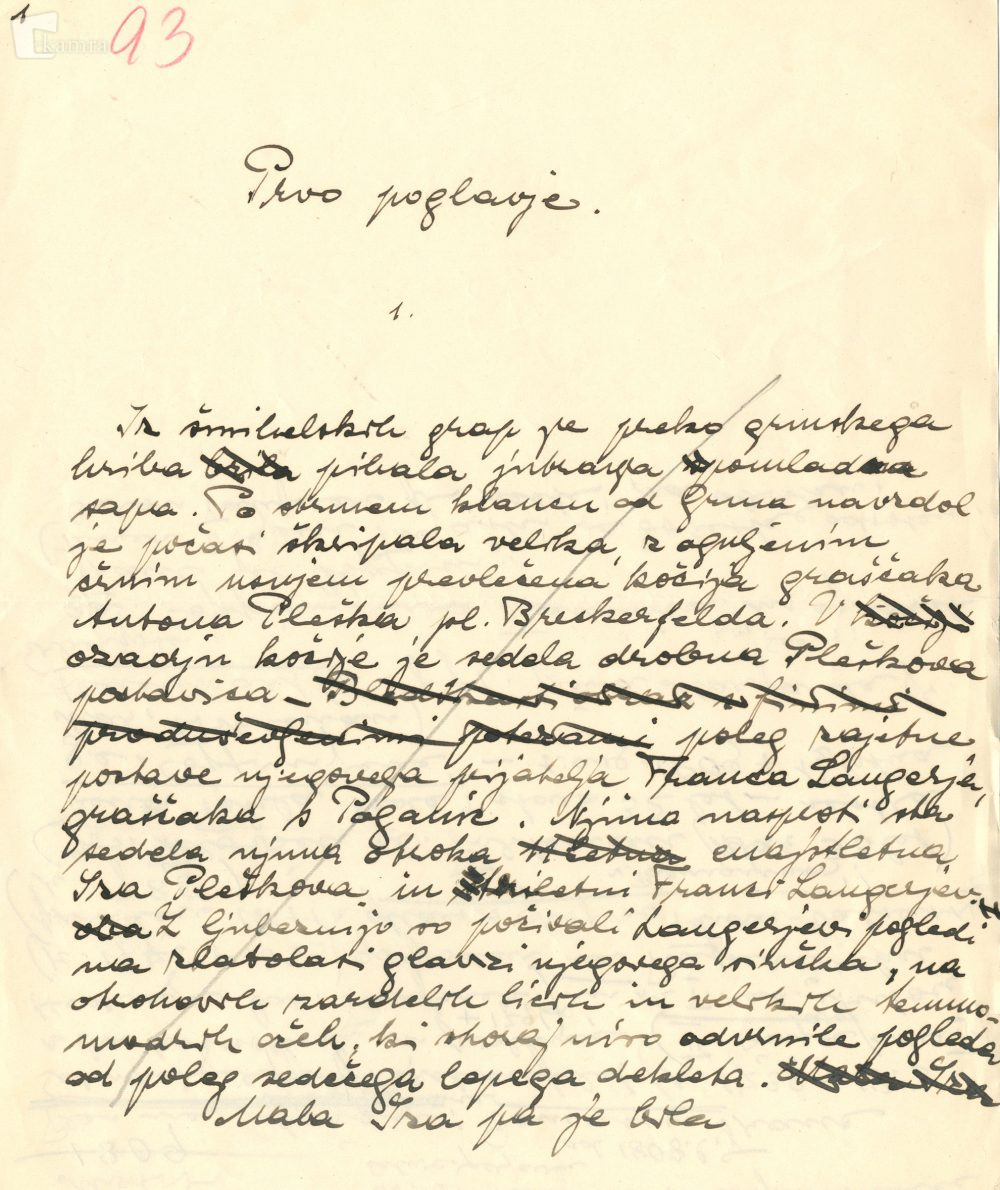 1
kamra
93
Prvo poglavje.
1.
Iz šmihelskih grap je preko grmskega
hriba brila pihala jutranja spomladna
sapa. Po strmem klancu od Grma navzdol
je počasi škripala velika, z oguljenim
črnim usnjem prevlečena kočija graščaka
Antona Pleška pl. Breckerfelda. V kočiji
ozadju kočije je sedela drobna Pleškova
postavica – obraz s finimi
produševljenimi potezami poleg zajetne
postave njegovega prijatelja Franca Langerja,
graščaka s Poganic. Njima nasproti sta
sedela njuna otroka 11letna enajstletna
Iza Pleškova in triletni Franci Langerjev.
oba Z ljubeznijo so počivali Langerjevi pogledi
na zlatolasi glavzi njegovega sinčka, na
otrokovih zardelih licih in velikih temno-
modrih očeh, ki skoraj niso odvrnile pogleda
od poleg sedečega lepega dekleta. Mala Iza
Mala Iza pa je bila